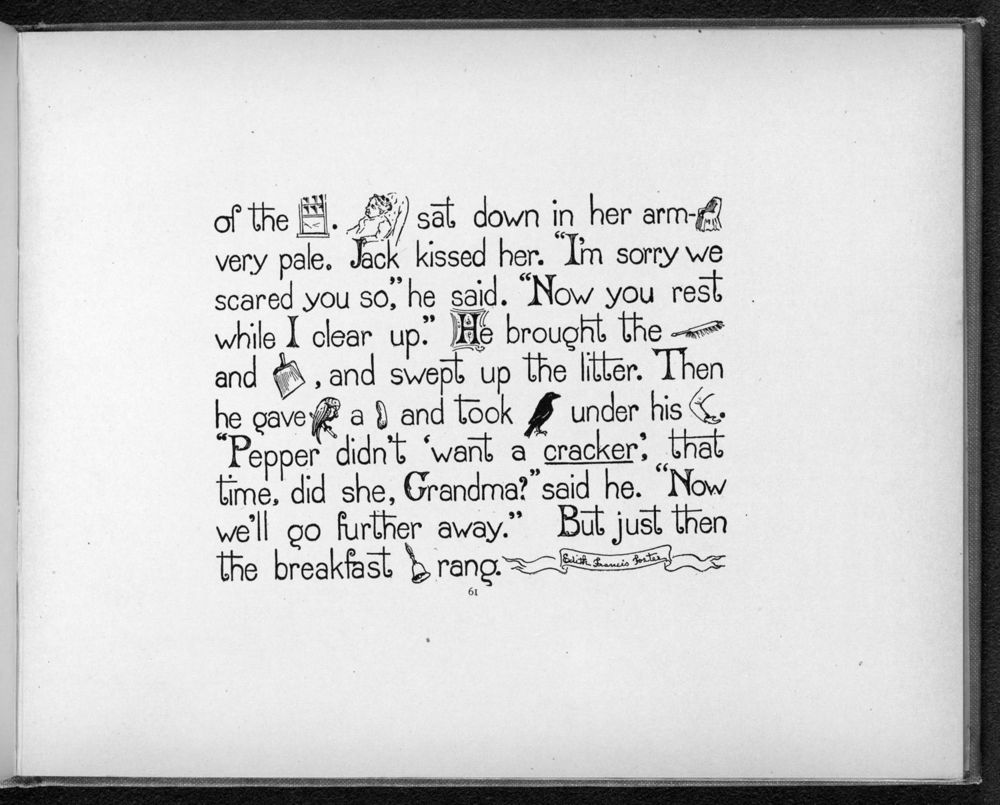 of the . sat down in her arm-
very pale. Jack kissed her. "I'm sorry we
scared you so," he said. "Now you rest
while I clear up." He brought the
and , and swept up the litter. Then
he gave a and took under his .
"Pepper didn't 'want a cracker', that
time, did she, Grandma?" said he. "Now
we'll go further away." But just then
the breakfast rang.
Edith Francis Foster
61